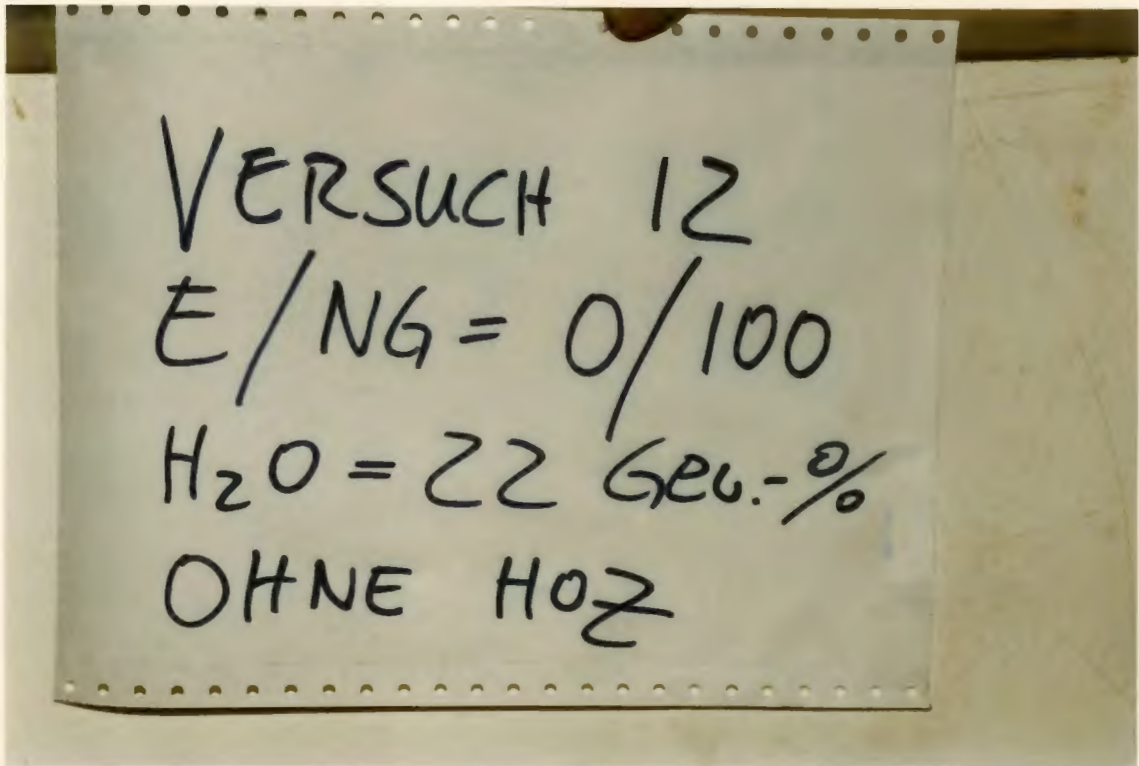 VERSUCH 12
E/NG = 0/100
H₂O = 22 Gew.-%
OHNE HOZ